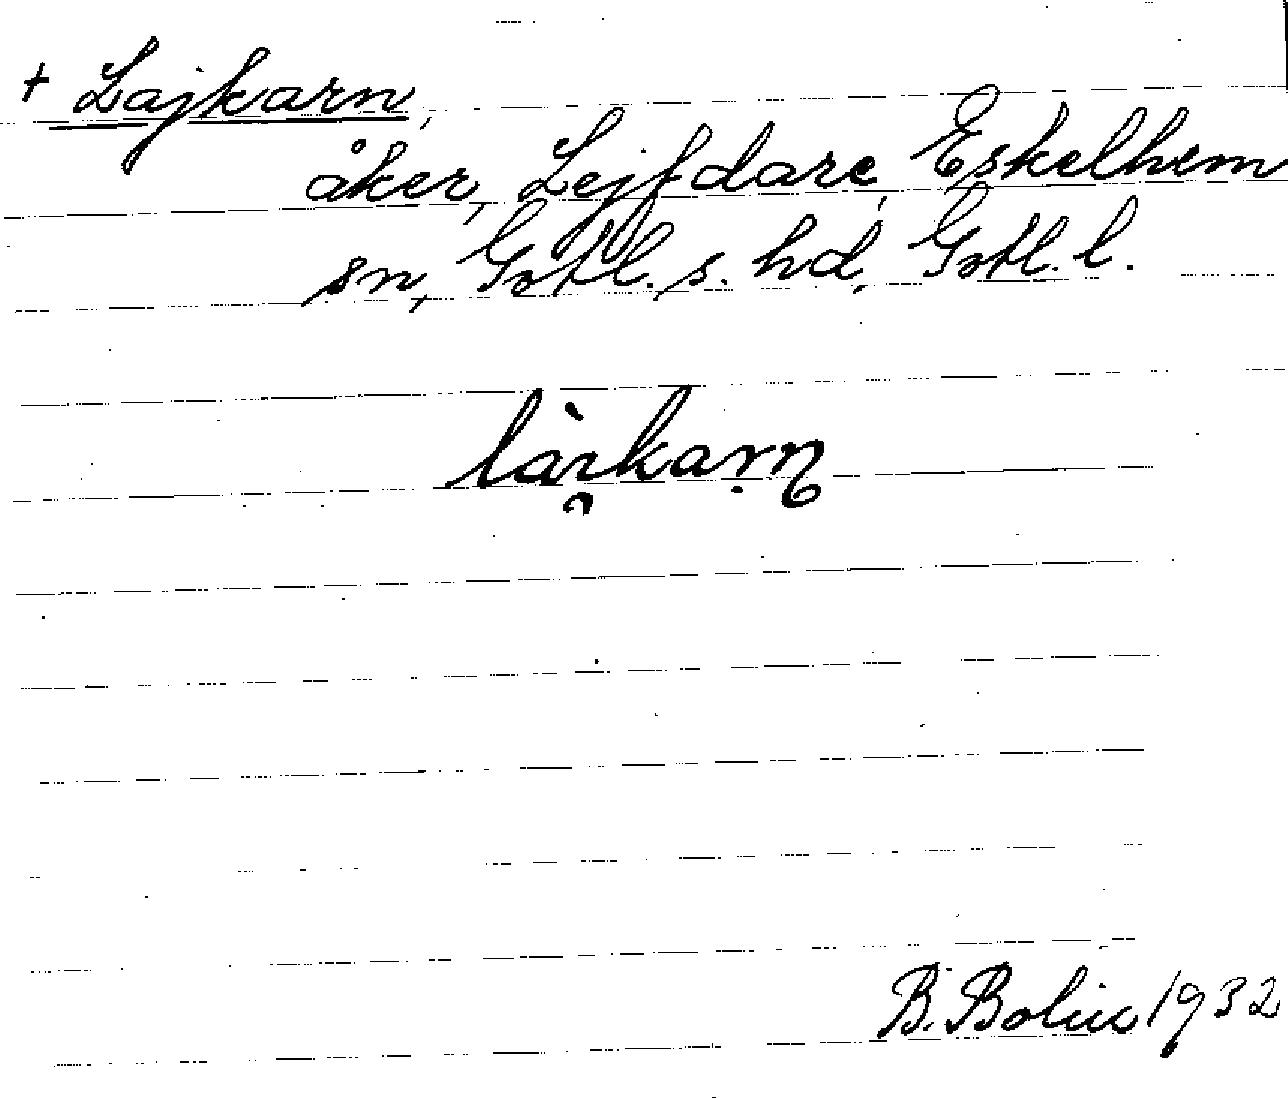 + Lajkarn,
åker, Lejfdare, Eskelhem
sn, Gotl. s. hd, Gotl. l.
B. Bolin 1932